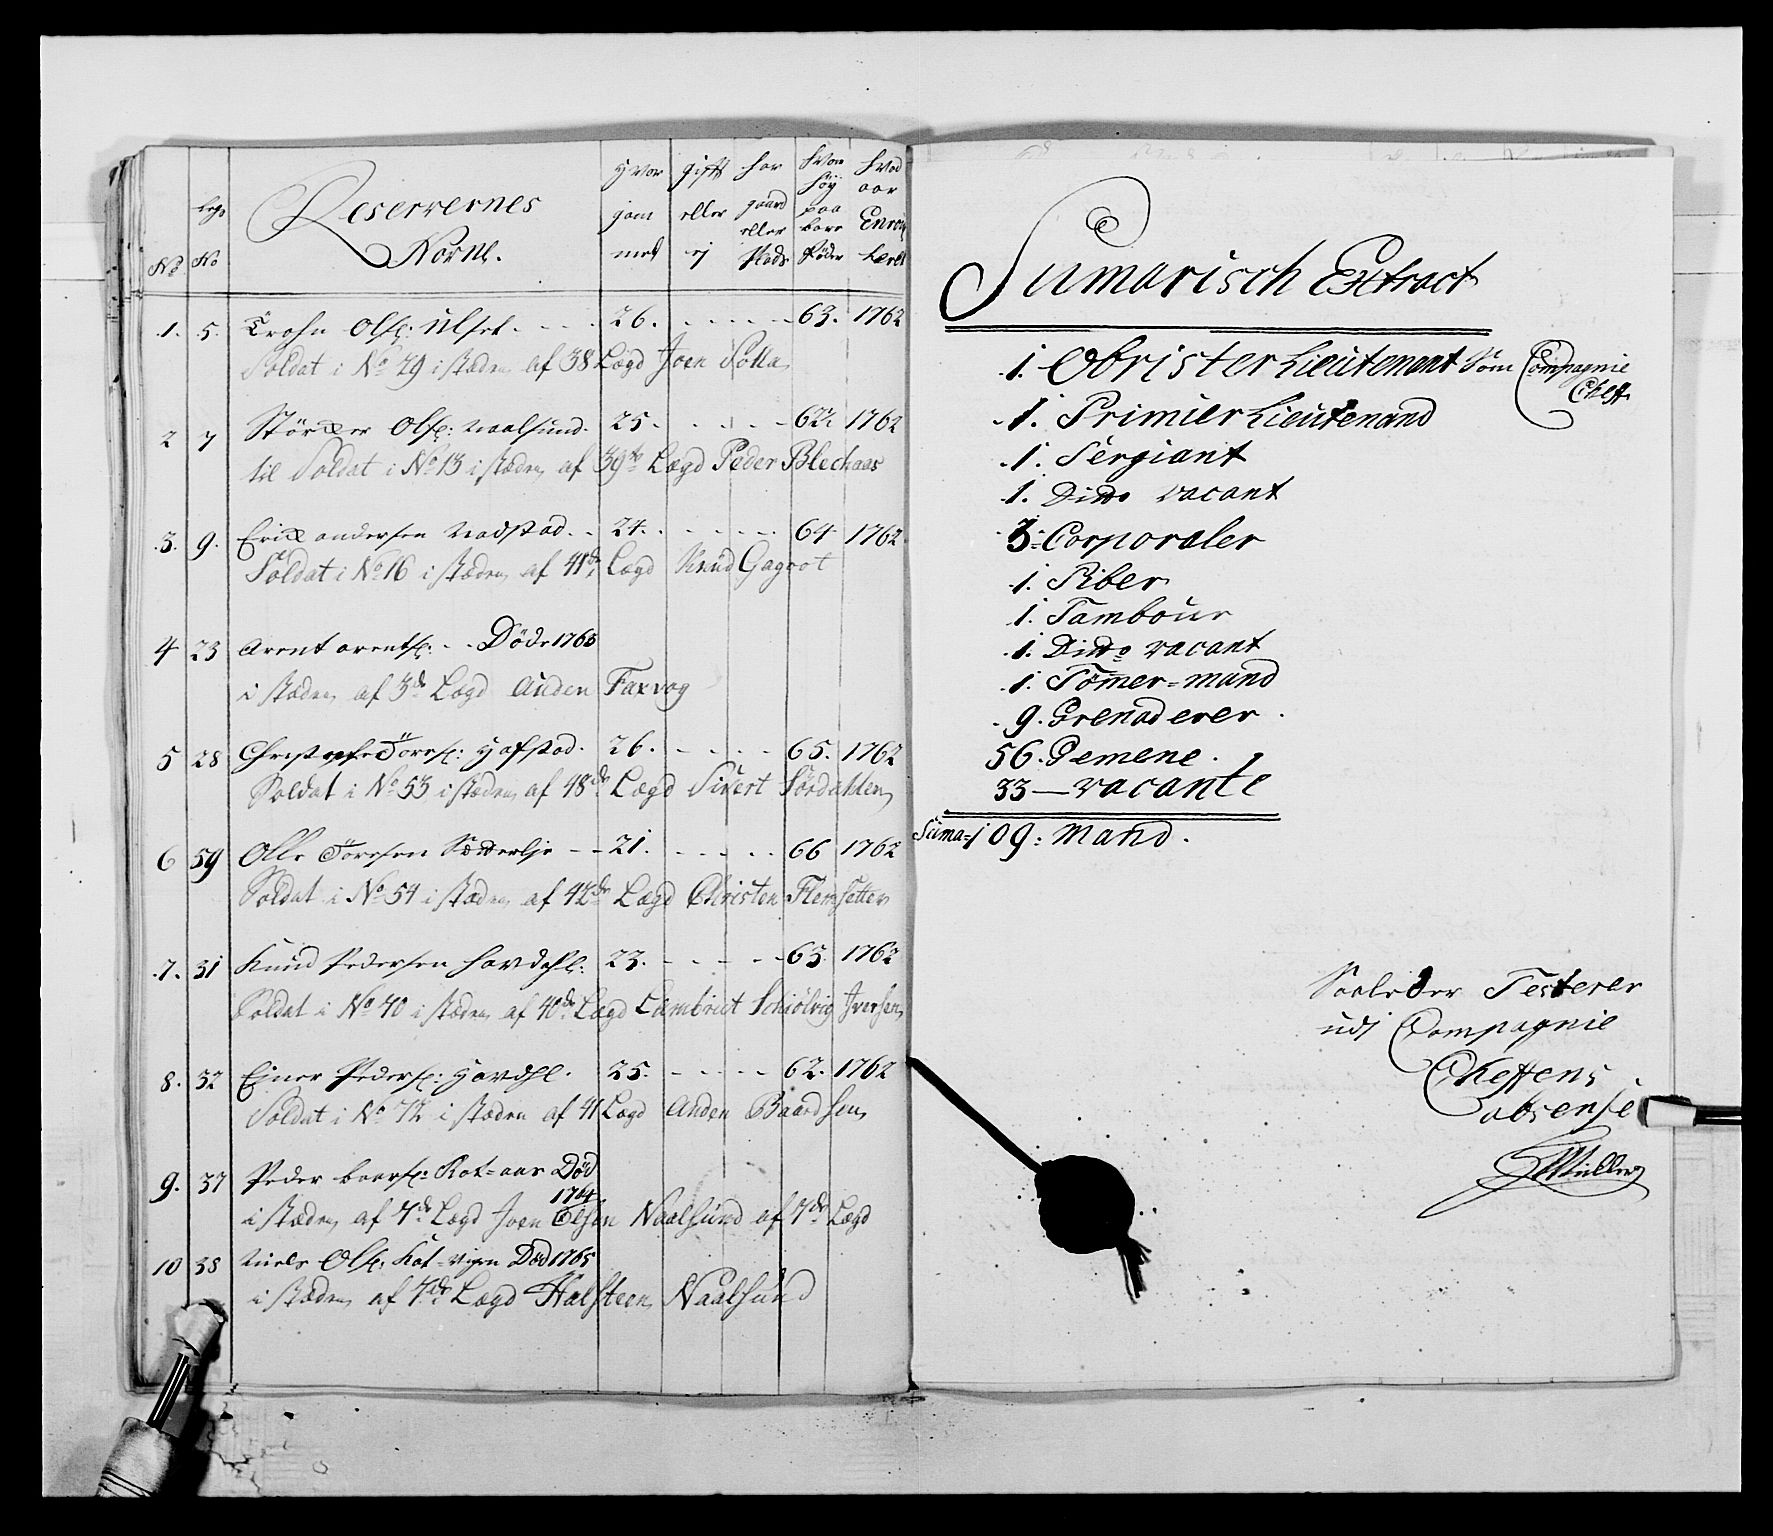 No
Legs No
Reservernes Navne.
Hvor gam mel
gift eller ej
har gaard eller Plads
Hvor høy paa bare Føder
Hvad aar Enroulleret
1. 5. Trohn Olss: Ulset. 26. 63. 1762
Soldat i No 29 i stæden af 38 Lægd Joen Solla
2 7 Størker Olss: Naalsund. 25. 62. 1762
til Soldat i No 13 i stæden af 39de Lægd Peder Blechaas
3. 9. Erik andersen Nadstad 24. 64. 1762
Soldat i No 16 i stæden af 41de Lægd Knud Gagoot
4 23 Arent arentss: Døde 1763
i stæden af 3de Lægd Auden Faxvog
5 28 Torrss: Hafstad. 26. 65. 1762
Soldat i No 53 i stæden af 48de Lægd Sivert Sørdahlen
6 59 Olle Torresen 21. 66 1762
Soldat i No 54 i stæden af 42de Lægd Christen Flemsetter
7. 31 Knud Pedersen Havdahl: 23. 63. 1762
Soldat i No 40 i stæden af 40de Lægd Lambricht Schiølvig Iversen
8. 32 Ejner Pederss: Havdhl. 25. 62. 1762
Soldat i No 72 i stæden af 41 Lægd Anden Baardsen
9. 37 Peder Død 1764
i stæden af 7de Lægd Joen Olsen Naalsund af 7de Lægd
10 38 Niels Olss: Død 1765
i stæden af 7de Lægd Halsteen Naalsund
Sumarisch Extract
1. Obrister Lieutenant Som Compagnie Cheff
1. Primier Lieutenand
1. Sergiant
1. Ditto vacant
3. Corporaler
1. Piber
1. Tambour
1. Ditto vacant
1. Tømmer=mand
9. Grenaderer.
56. Gemene.
33 — vacante
Suma= 109: Mand.
Saaleder Testerer
udj Compagnie
Cheffens
absense
Müller